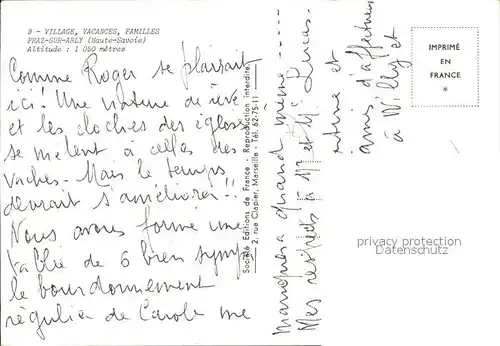 9 - VILLAGE, VACANCES, FAMILLES
PRAZ-SUR-ARLY (Haute-Savoie)
Altitude : 1 050 mètres
Comme Roger se plairait
ici ! Une nature de rêve
et les cloches des églises
se mêlent à celles des
vaches. Mais le temps
devrait s'améliorer !!
Nous avons formé une
de 6 bien sympa
le bourdonnement
régulier de Carole me
manquera quand même -----
Mes respects à Mr et Me Lucas.
et
amis, d'affectueux
à Willy et
Société Editions de France - Reproduction interdite
2, rue Clapier, Marseille - Tél. 62-75-11
IMPRIMÉ
EN
FRANCE
*
privacy protection
Datenschutz